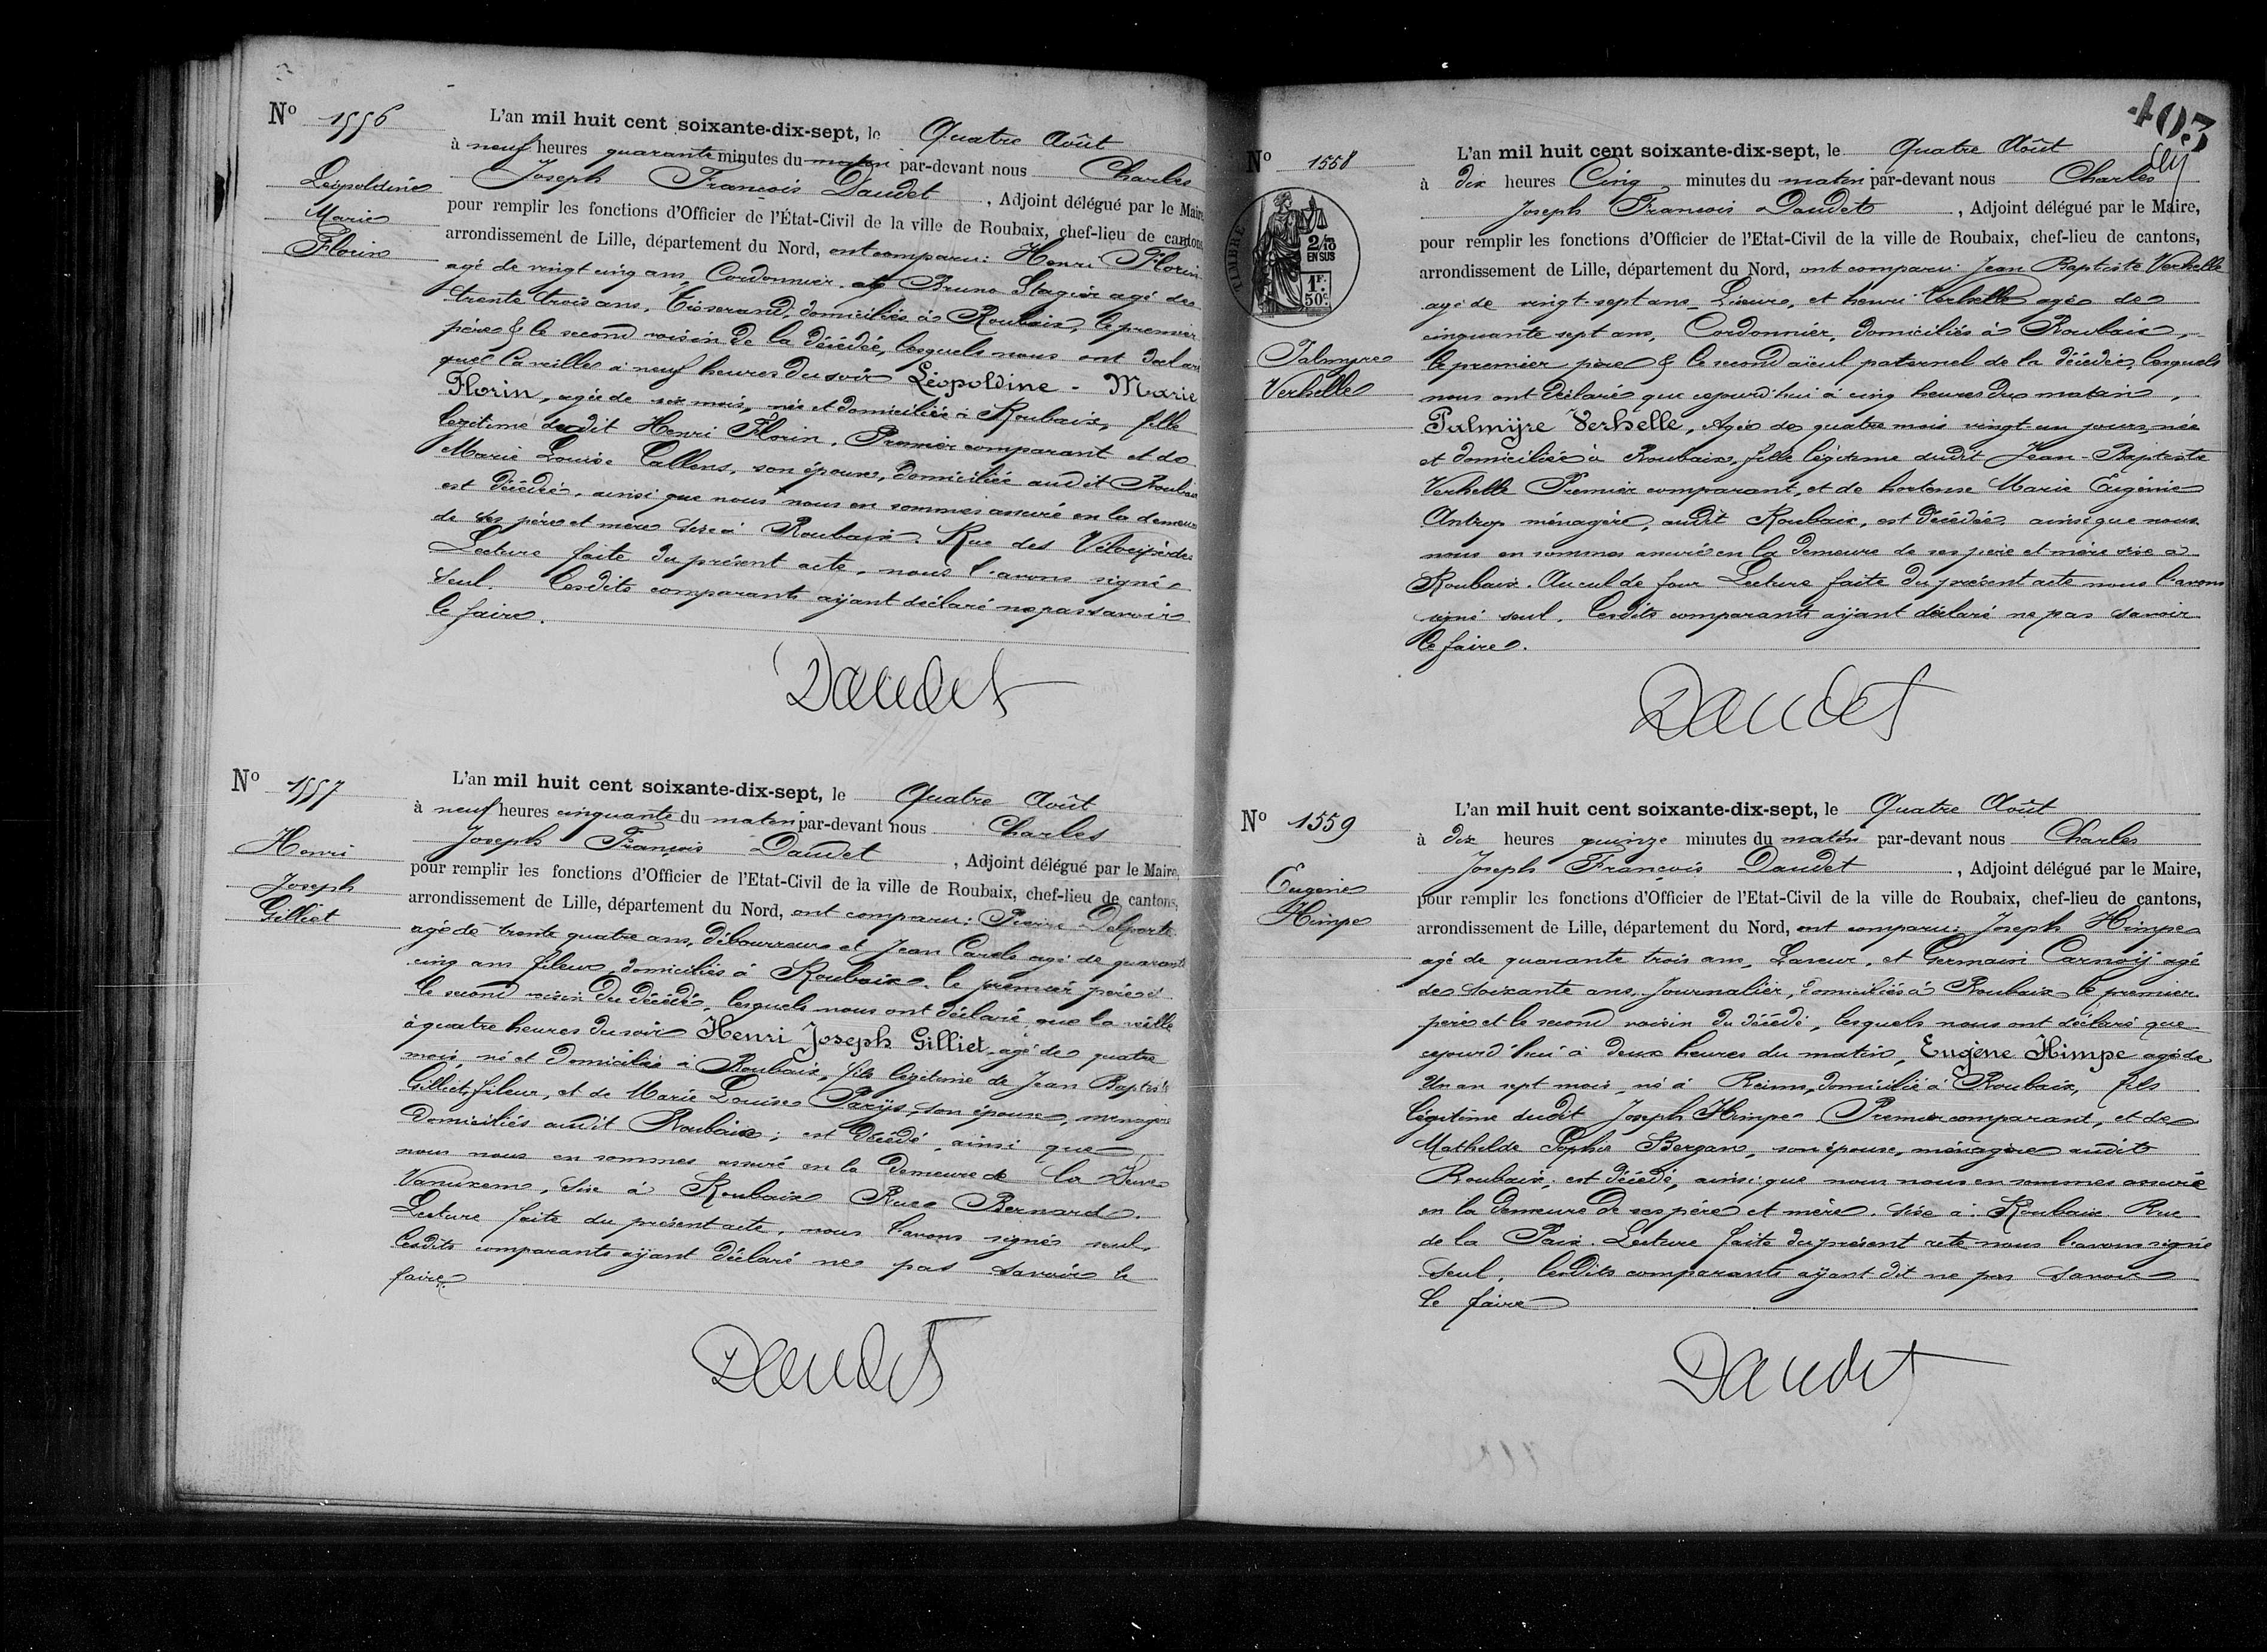 Nº 1556
Léopoldine
Marie
Florin
L'an mil huit cent soixante-dix-sept, le Quatre Août
à neuf heures quarante minutes du matin par-devant nous Charles
Joseph François Daudet, Adjoint délégué par le Maire
pour remplir les fonctions d'Officier de l'État-Civil de la ville de Roubaix, chef-lieu de cantons
arrondissement de Lille, département du Nord, ont comparu: Henri Florin
agé de vingt cinq ans, Cordonnier et Bruno Stagier agé de
trente trois ans, Tisserand, domiciliés à Roubaix, le premier
père & le second voisin de la décédée, lesquels nous ont déclaré
que la veille à neuf heures du soir Léopoldine - Marie
Florin, agée de six mois, née et domiciliée à Roubaix, fille
légitime dudit Henri Florin, Premier comparant et de
Marie Louise Callens, son épouse, domiciliée audit Roubaix
est décédée, ainsi que nous nous en sommes assuré en la demeure
de ses père et mère sise à Roubaix. Rue des Vélocipèdes
Lecture faite du présent acte, nous l'avons signé
seul. Lesdits comparants ayant déclaré ne pas savoir
le faire.
Daudet
Nº 1557
Henri
Joseph
Gilliet
L'an mil huit cent soixante-dix-sept, le Quatre Août
à neuf heures cinquante du matin par-devant nous Charles
Joseph François Daudet, Adjoint délégué par le Maire,
pour remplir les fonctions d'Officier de l'Etat-Civil de la ville de Roubaix, chef-lieu de cantons,
arrondissement de Lille, département du Nord, ont comparu: Pierre Delporte
agé de trente quatre ans, débourreur et Jean Carels agé de quarante
cinq ans fileur, domiciliés à Roubaix. le premier père et
le second voisin du décédé, lesquels nous ont déclaré que la veille
à quatre heures du soir Henri Joseph Gilliet agé de quatre
mois né et domicilié à Roubaix, fils légitime de Jean Baptiste
Gilliet, fileur, et de Marie Louise Parys, son épouse, ménagère
domiciliés audit Roubaix; est décédé, ainsi que
nous nous en sommes assuré en la demeure de la Veuve
Vanuxem, sise à Roubaix Rue Bernard.
Lecture faite du présent acte, nous l'avons signé seul,
lesdits comparants ayant déclaré ne pas savoir le
faire
Daudet
403
Nº 1558
TIMBRE
2/10
EN SUS
1F.
50c
Palmyre
Verhelle
L'an mil huit cent soixante-dix-sept, le Quatre Août
à dix heures Cinq minutes du matin par-devant nous Charles
Joseph François Daudet, Adjoint délégué par le Maire,
pour remplir les fonctions d'Officier de l'Etat-Civil de la ville de Roubaix, chef-lieu de cantons,
arrondissement de Lille, département du Nord, ont comparu Jean Baptiste Verhelle
agé de vingt-sept ans, et henri Verhelle agé de
cinquante sept ans, Cordonnier, domiciliés à Roubaix,
le premier père & le second aïeul paternel de la décédée, lesquels
nous ont déclaré que cejourd'hui à cinq heures du matin,
Palmyre Verhelle, Agée de quatre mois vingt-un jours, née
et domiciliée à Roubaix, fille légitime dudit Jean-Baptiste
Verhelle Premier comparant, et de hortense Marie Eugénie
Antrop ménagère, audit Roubaix, est décédée ainsi que nous
nous en sommes assuré en la demeure de ses père et mère sise à
Roubaix. Au cul de four Lecture faite du présent acte nous l'avons
signé seul. Lesdits comparants ayant déclaré ne pas savoir
le faire.
Daudet
Nº 1559
Eugène
Himpe
L'an mil huit cent soixante-dix-sept, le Quatre Août
à dix heures quinze minutes du matin par-devant nous Charles
Joseph François Daudet, Adjoint délégué par le Maire,
pour remplir les fonctions d'Officier de l'Etat-Civil de la ville de Roubaix, chef-lieu de cantons,
arrondissement de Lille, département du Nord, ont comparu: Joseph Himpe
agé de quarante trois ans, Laveur, et Germain Carnoÿ agé
de soixante ans, Journalier, domiciliés à Roubaix le premier
père et le second voisin du décédé, lesquels nous ont déclaré que
cejourd'hui à deux heures du matin, Eugène Himpe agé de
Un an sept mois, né à Reims, domicilié à Roubaix, fils
légitime dudit Joseph Himpe Premier comparant, et de
Mathilde Sophie Bergans, son épouse, ménagère audit
Roubaix, est décédé, ainsi que nous nous en sommes assuré
en la demeure de ses père et mère, sise à Roubaix Rue
de la Paix. Lecture faite du présent acte nous l'avons signé
seul, lesdits comparants ayant dit ne pas savoir
le faire
Daudet